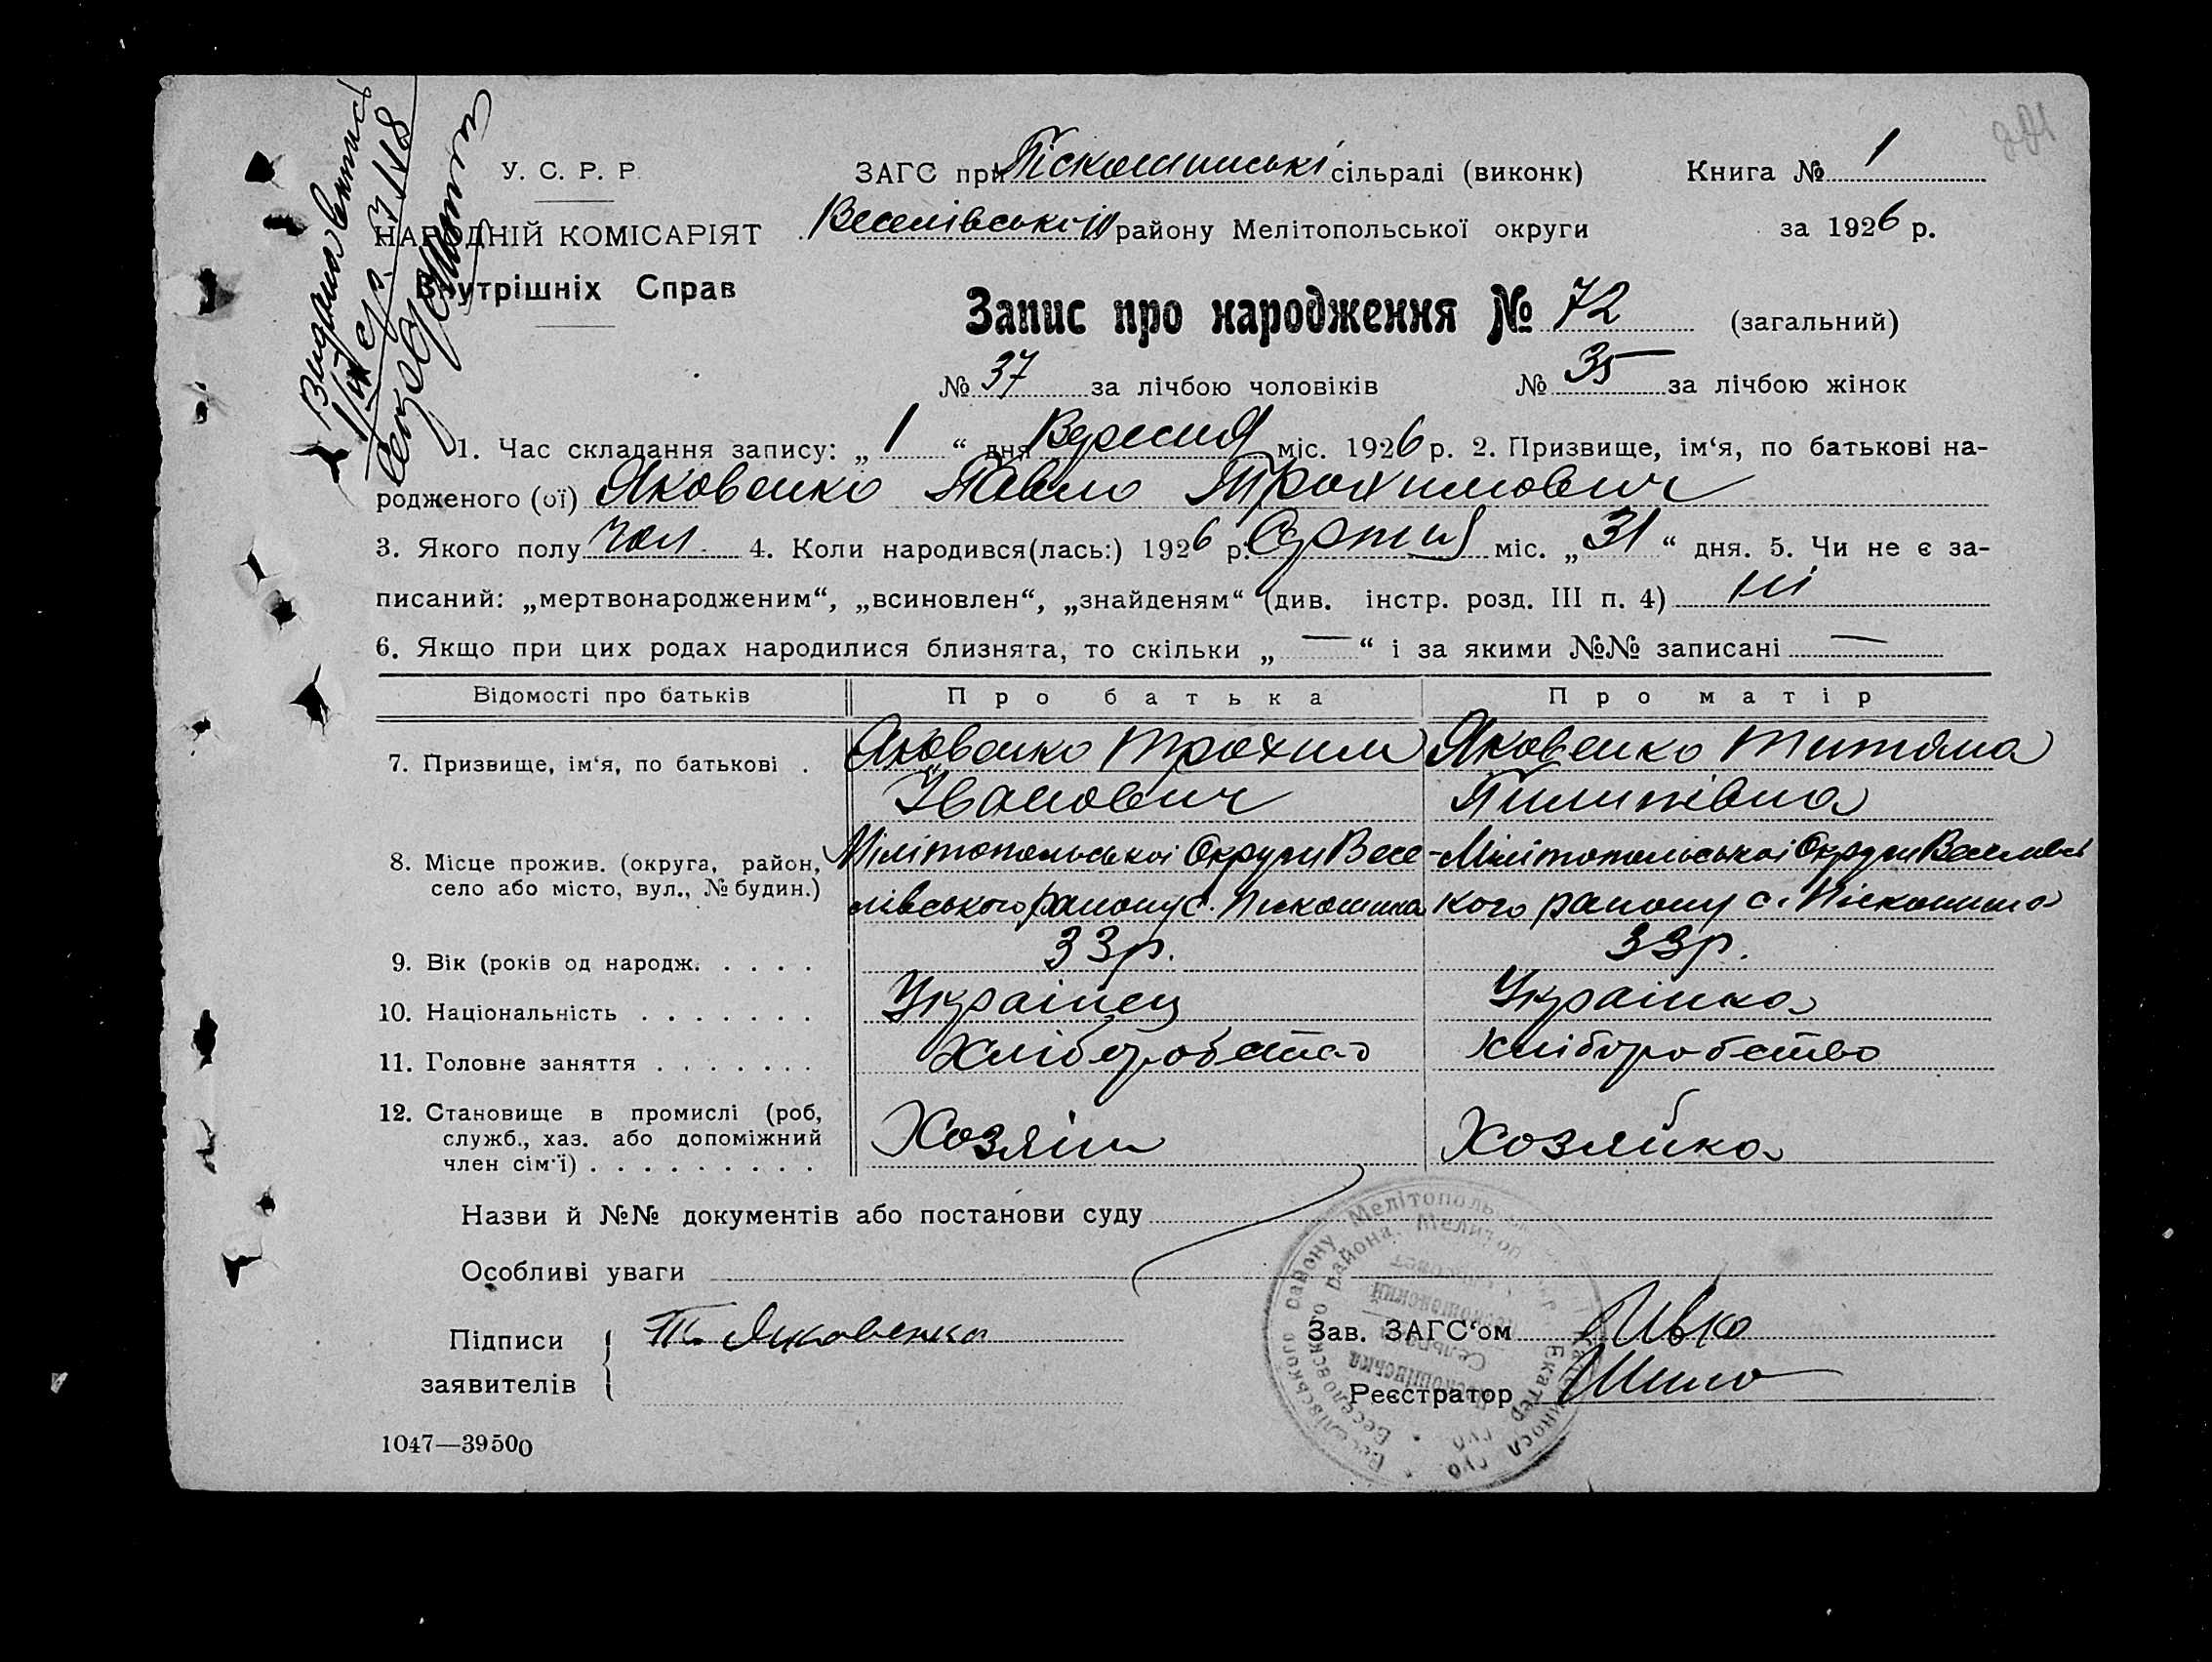 У. С. Р. Р.
НАРОДНІЙ КОМІСАРІЯТ
Внутрішніх Справ
ЗАГС при Піскошинські сільраді (виконк)
Веселівського району Мелітопольської округи
Книга № 1
за 1926 р.
Запис про народження № 72 (загальний)
№ 37 за лічбою чоловіків № 35 за лічбою жінок
1. Час складання запису: „ 1 “ дня Вересня міс. 1926 р. 2. Призвище, ім‘я, по батькові на-
родженого (ої) Яковенко Павло Трохимович
3. Якого полу чол. 4. Коли народився(лась:) 1926 р. Серпня міс. „ 31 “ дня. 5. Чи не є за-
писаний: „мертвонародженим“, „всиновлен“, „знайденям“ (див. інстр. розд. III п. 4) ні
6. Якщо при цих родах народилися близнята, то скільки „ — “ і за якими №№ записані —
Відомості про батьків Про батька Про матір
7. Призвище, ім‘я, по батькові . Яковенко Трохим Яковенко Титяна
Іванович Пилипівна
8. Місце прожив. (округа, район, Мілітопольської Округи Весе- Мілітопольської Округи Веселівсь
село або місто, вул., № будин.) лівського району с. Піскошина кого району с. Піскошина
9. Вік (років од народж. . . . . 33 р. 33 р.
10. Національність . . . . . . . Українец Українка
11. Головне заняття . . . . . . . Хліборобство Хліборобство
12. Становище в промислі (роб,
служб., хаз. або допоміжний Хозяін Хозяйка
член сім‘ї) . . . . . . . . .
Назви й №№ документів або постанови суду
Особливі уваги
Підписи Т. Яковенко
заявителів
Зав. ЗАГС‘ом
Реєстратор
1047—39500